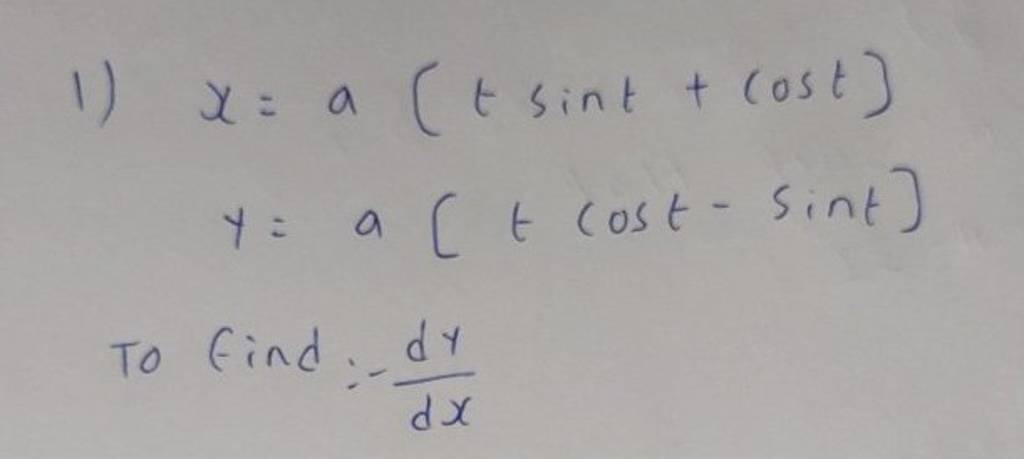 1) x = a [ t sint + cost ]
y = a [ t cost - sint ]
To find :- dy
dx